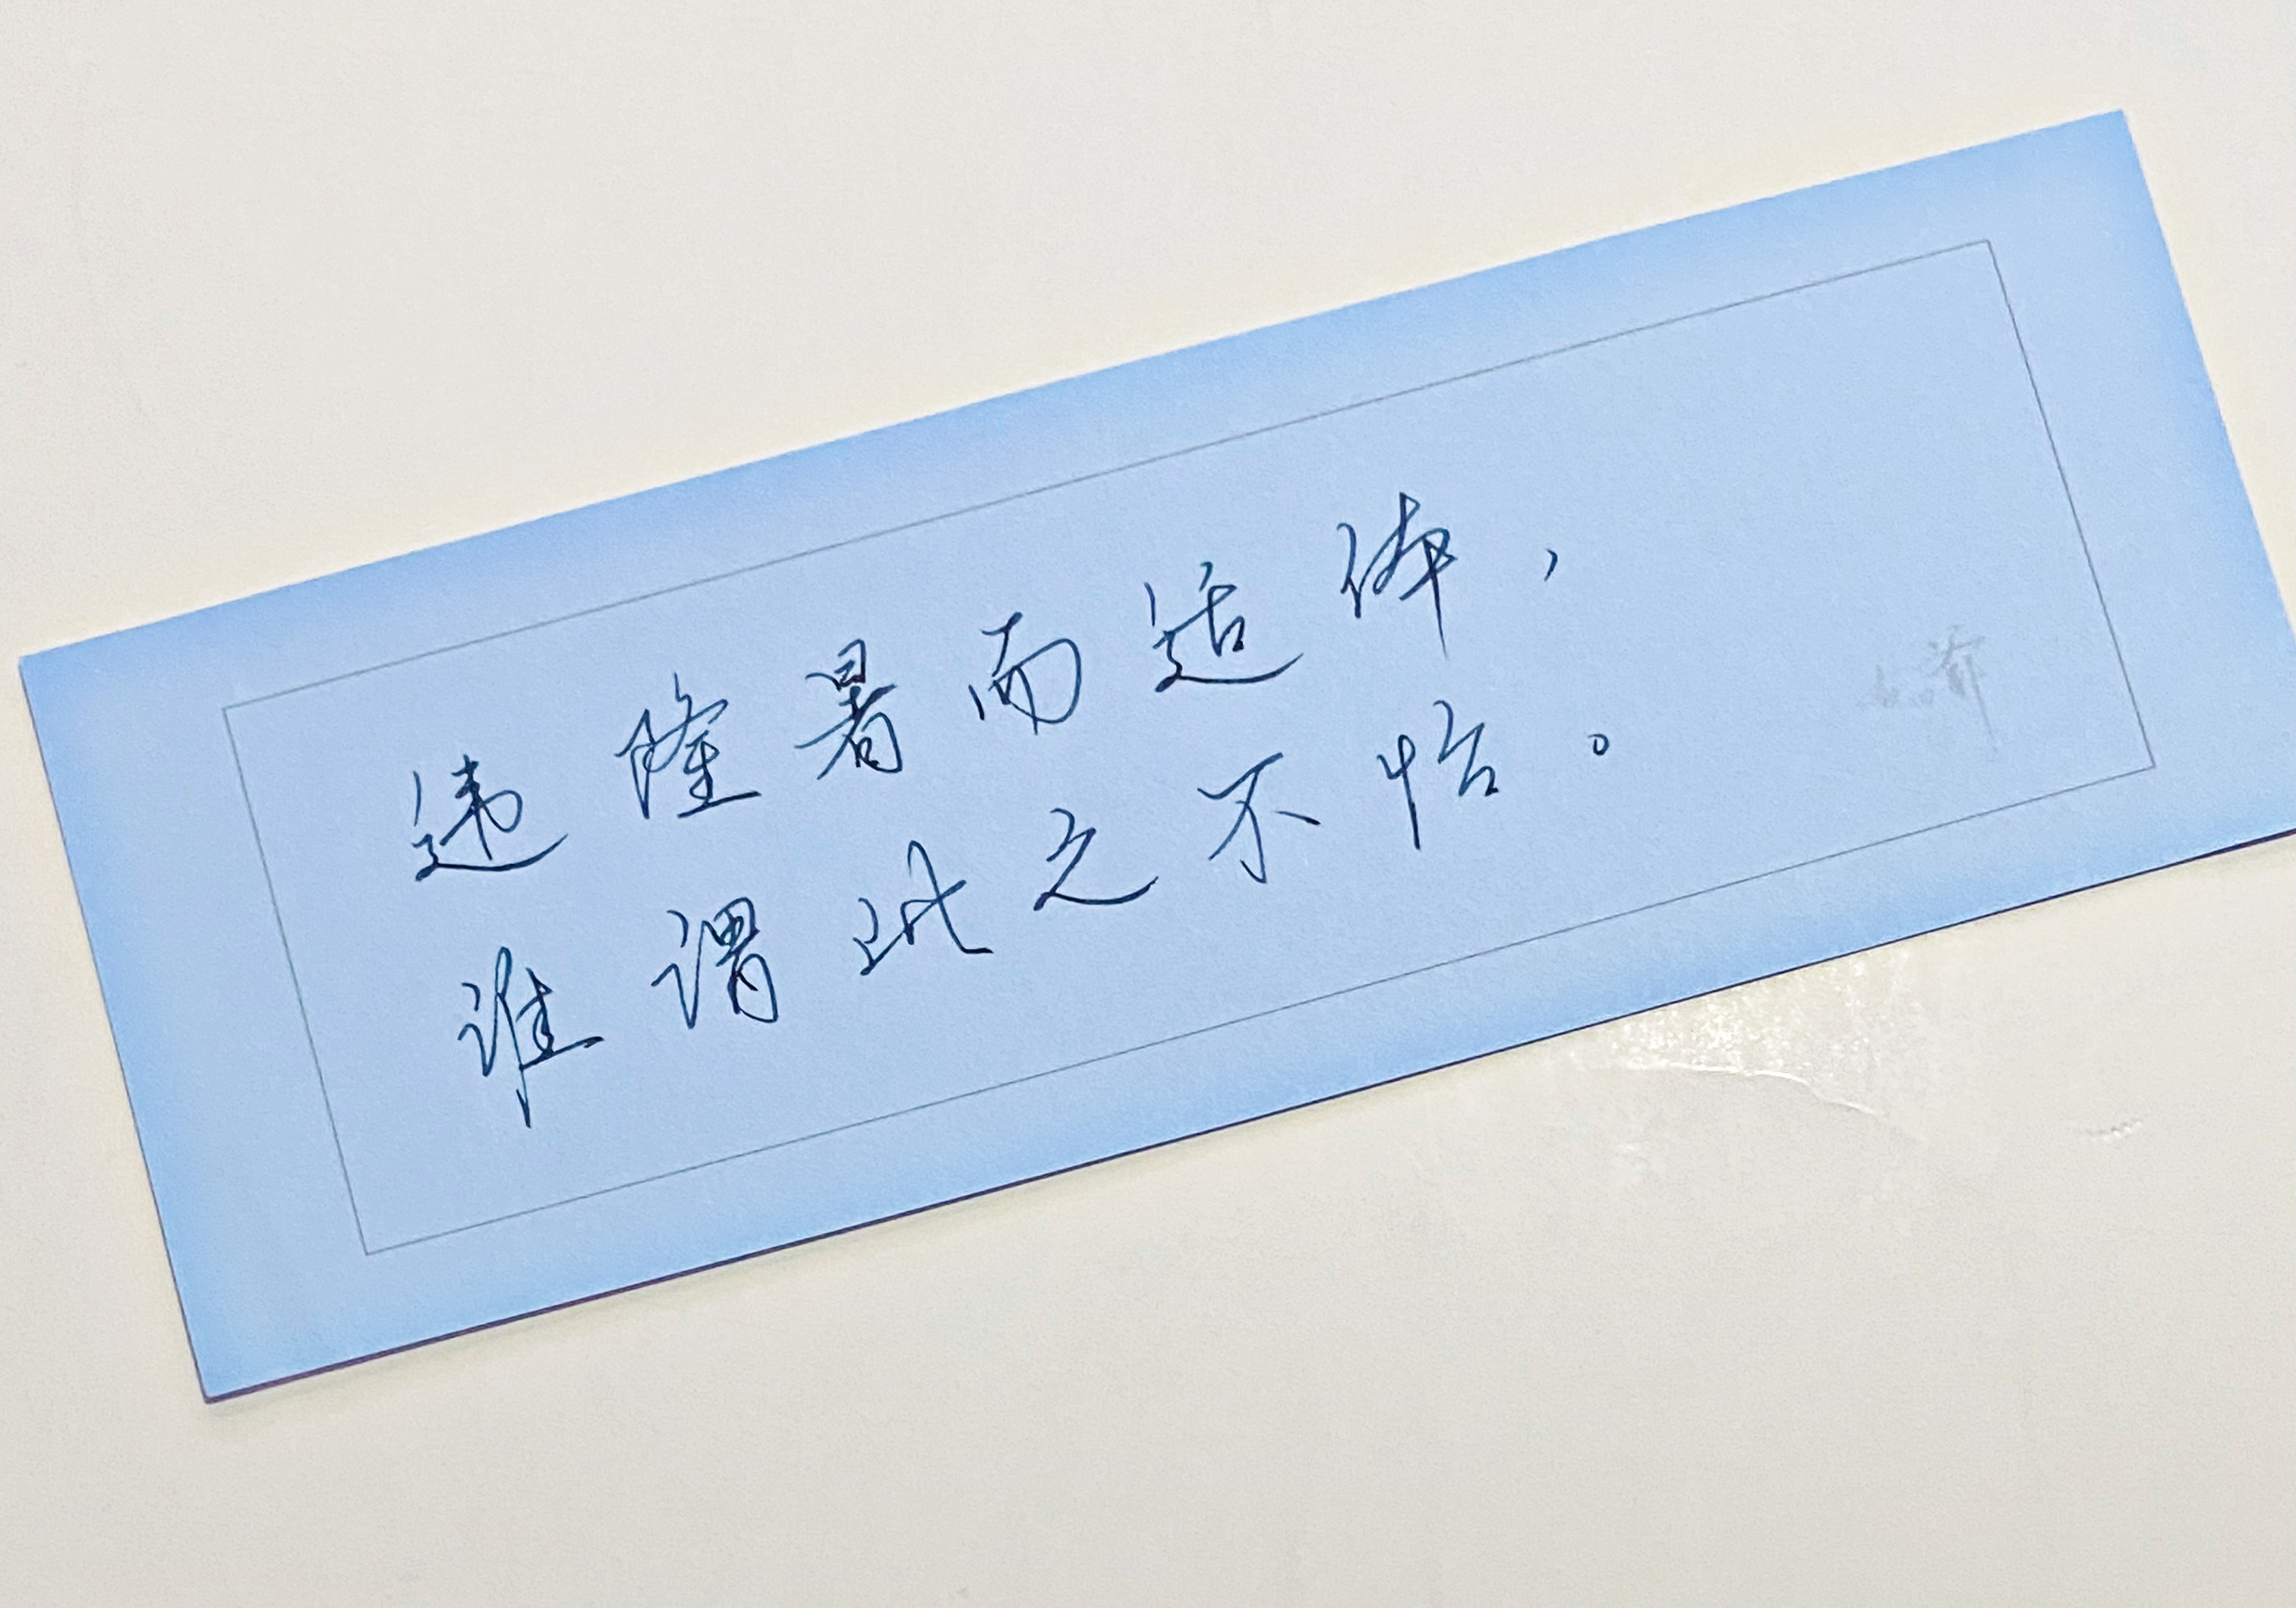 违隆暑而适体，
谁谓此之不怡。